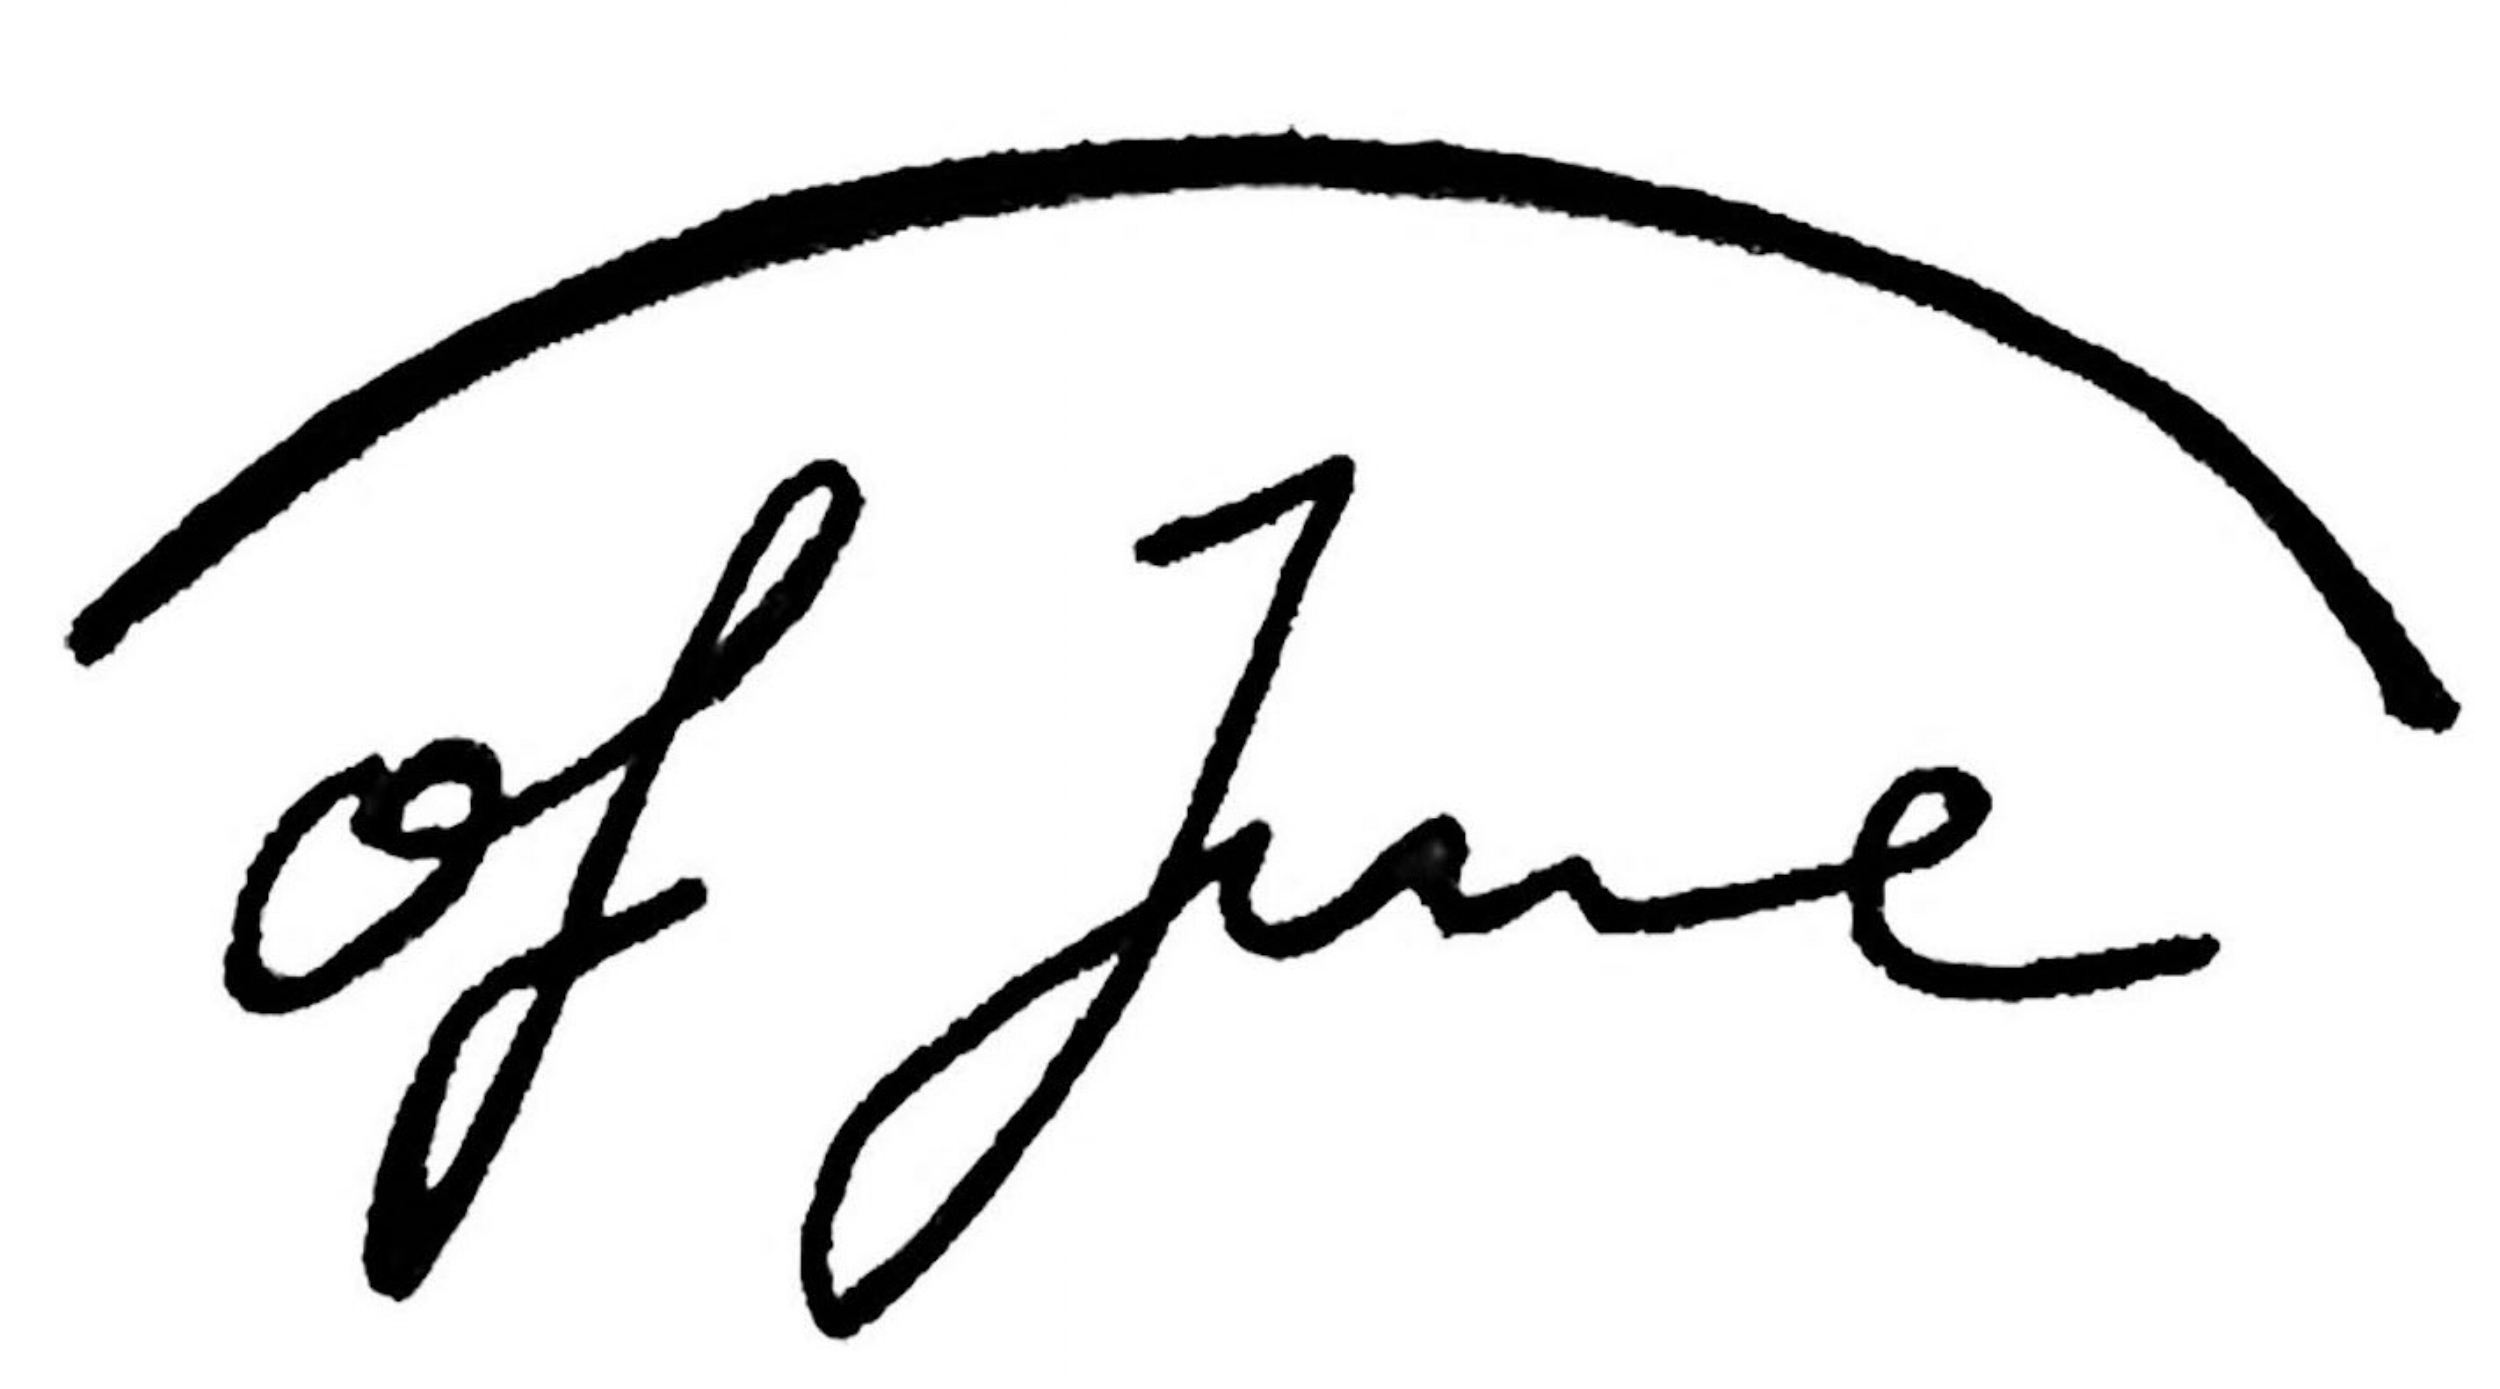 of June